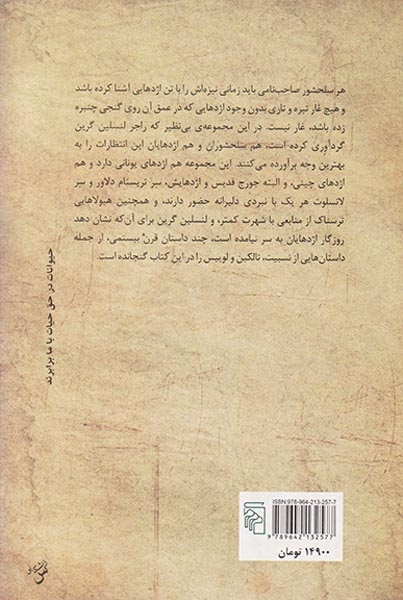 هر سلحشور صاحب‌نامی باید زمانی نیزه‌اش را با تن اژدهایی آشنا کرده باشد
و هیچ غار تیره و تاری بدون وجود اژدهایی که در عمق آن روی گنجی چنبره
زده باشد، غار نیست. در این مجموعه‌ی بی‌نظیر که راجر لنسلین گرین
گردآوری کرده است، هم سلحشوران و هم اژدهایان این انتظارات را به
بهترین وجه برآورده می‌کنند. این مجموعه هم اژدهای یونانی دارد و هم
اژدهای چینی، و البته جورج قدیس و اژدهایش، سِر تریستام دلاور و سِر
لانسلوت هر یک با نبردی دلیرانه حضور دارند، و همچنین هیولاهایی
ترسناک از منابعی با شهرت کمتر، و لنسلین گرین برای آن‌که نشان دهد
روزگار اژدهایان به سر نیامده است، چند داستان قرن بیستمی، از جمله
داستان‌هایی از نسبیت، تالکین و لوییس را در این کتاب گنجانده است.
حیوانات در حق حیات با ما برابرند
ISBN:978-964-213-257-7
9 789642 132577
۱۴۹۰۰ تومان